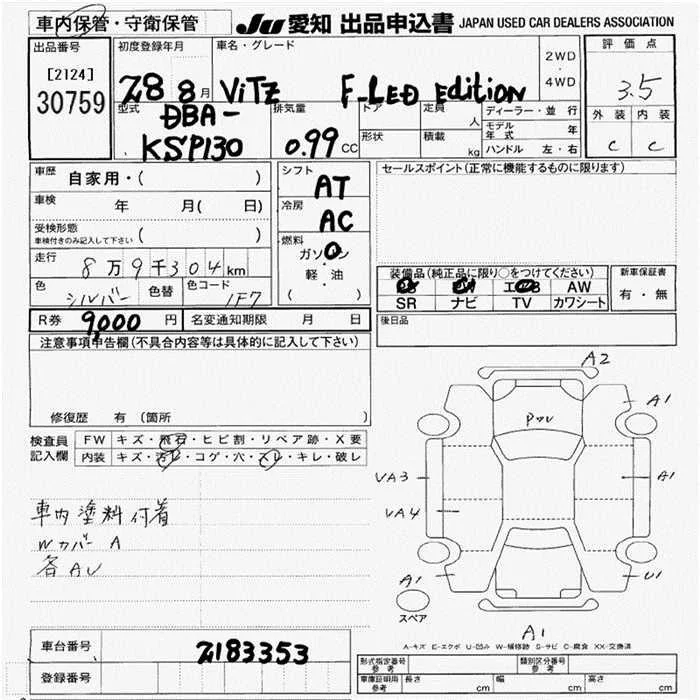 車内保管・守衛保管
JU 愛知 出品申込書 JAPAN USED CAR DEALERS ASSOCIATION
出品番号
[2124]
30759
初度登録年月
28 8月
車名・グレード
ViTZ F-LED EdiTiON
2WD
・
4WD
評価点
3.5
型式
DBA-
KSP130
排気量
0.99 CC
ドア
定員
人
形状
積載
kg
ディーラー・並行
モデル年式
年
ハンドル 左・右
外装 内装
C C
車歴
自家用・( )
車検
年 月( 日)
受検形態
車検付きのみ記入して下さい ( )
走行
8万9千304km
色
シルバー
色替
色コード
1F7
シフト
AT
冷房
AC
燃料
ガソリン
・
軽・油
( )
セールスポイント(正常に機能するものに限ります)
装備品(純正品に限り○をつけてください)
AW
SR ナビ TV カワシート
新車保証書
有・無
後日品
R券 9,000 円
名変通知期限 月 日
注意事項申告欄(不具合内容等は具体的に記入して下さい)
修復歴 有(箇所 )
検査員
記入欄
FW キズ・飛石・ヒビ割・リペア跡・X要
内装 キズ・汚レ・コゲ・穴・スレ・キレ・破レ
車内塗料付着
Wカバー A
各AU
A2
A1
VA3
A1
VA4
A1
U1
スペア
A1
A-キズ E-エクボ U-凹み W-補修跡 S-サビ C-腐食 XX-交換済
車台番号
2183353
登録番号
形式指定番号
参考
類別区分番号
参考
車庫証明用
参考
長さ cm
幅 cm
高さ cm